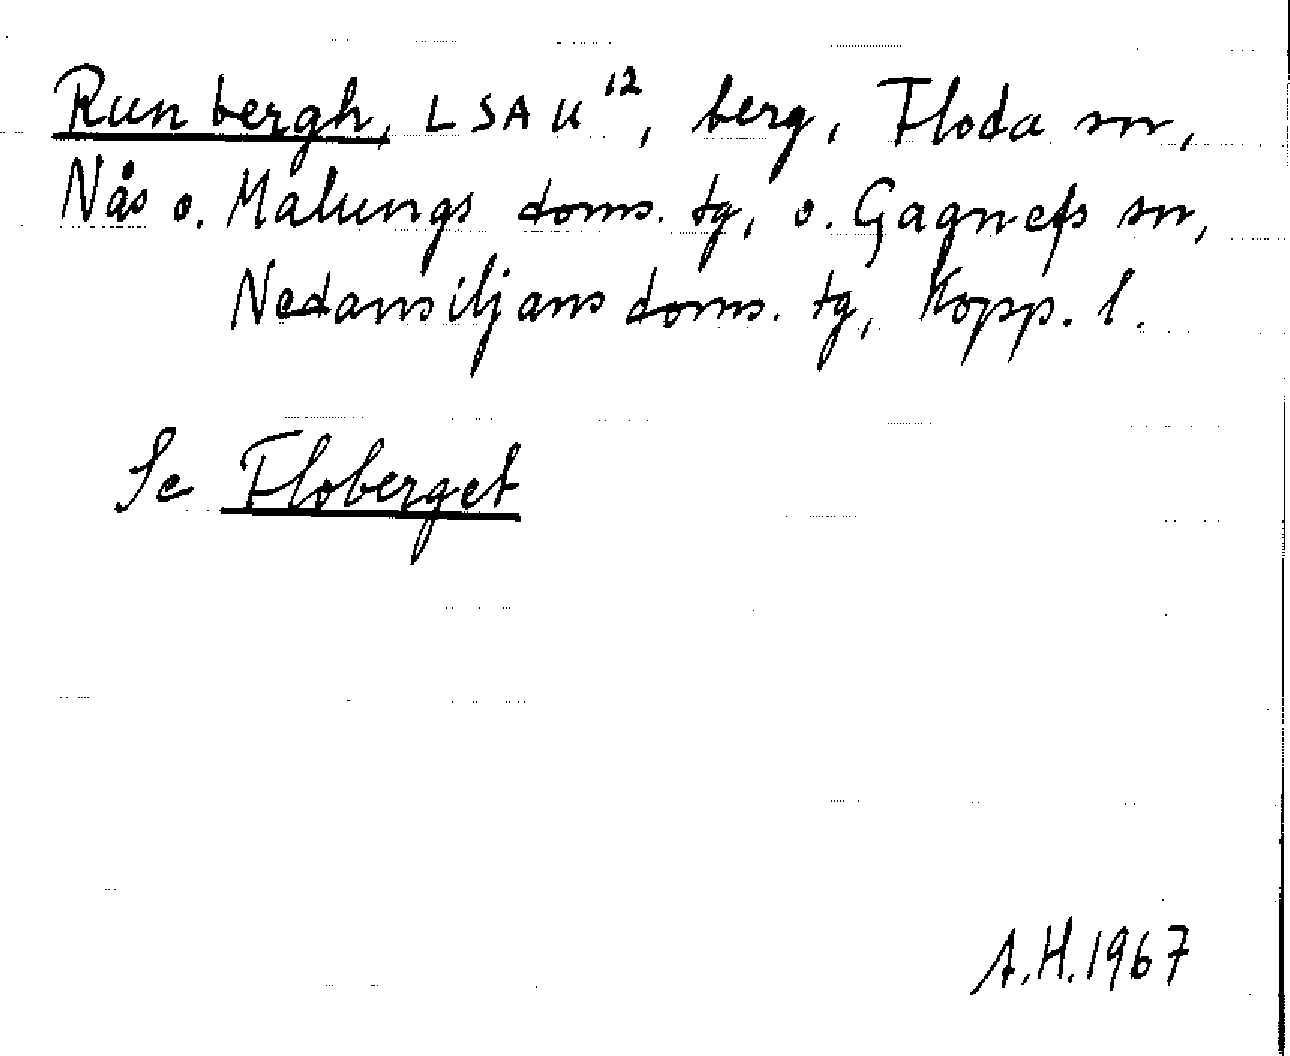 Runbergh, LSA U¹², berg, Floda sn,
Nås o. Malungs doms. tg, o. Gagnefs sn,
Nedansiljans doms. tg, Kopp. l.
Se Floberget
A.H. 1967